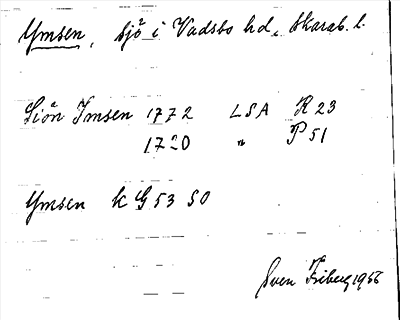 Ymsen, sjö i Vadsbo hd, Skarab. l.
Siön Imsen 1772 LSA R 23
1720 " P 51
Ymsen k G 53 SO
Sven Friberg 1956